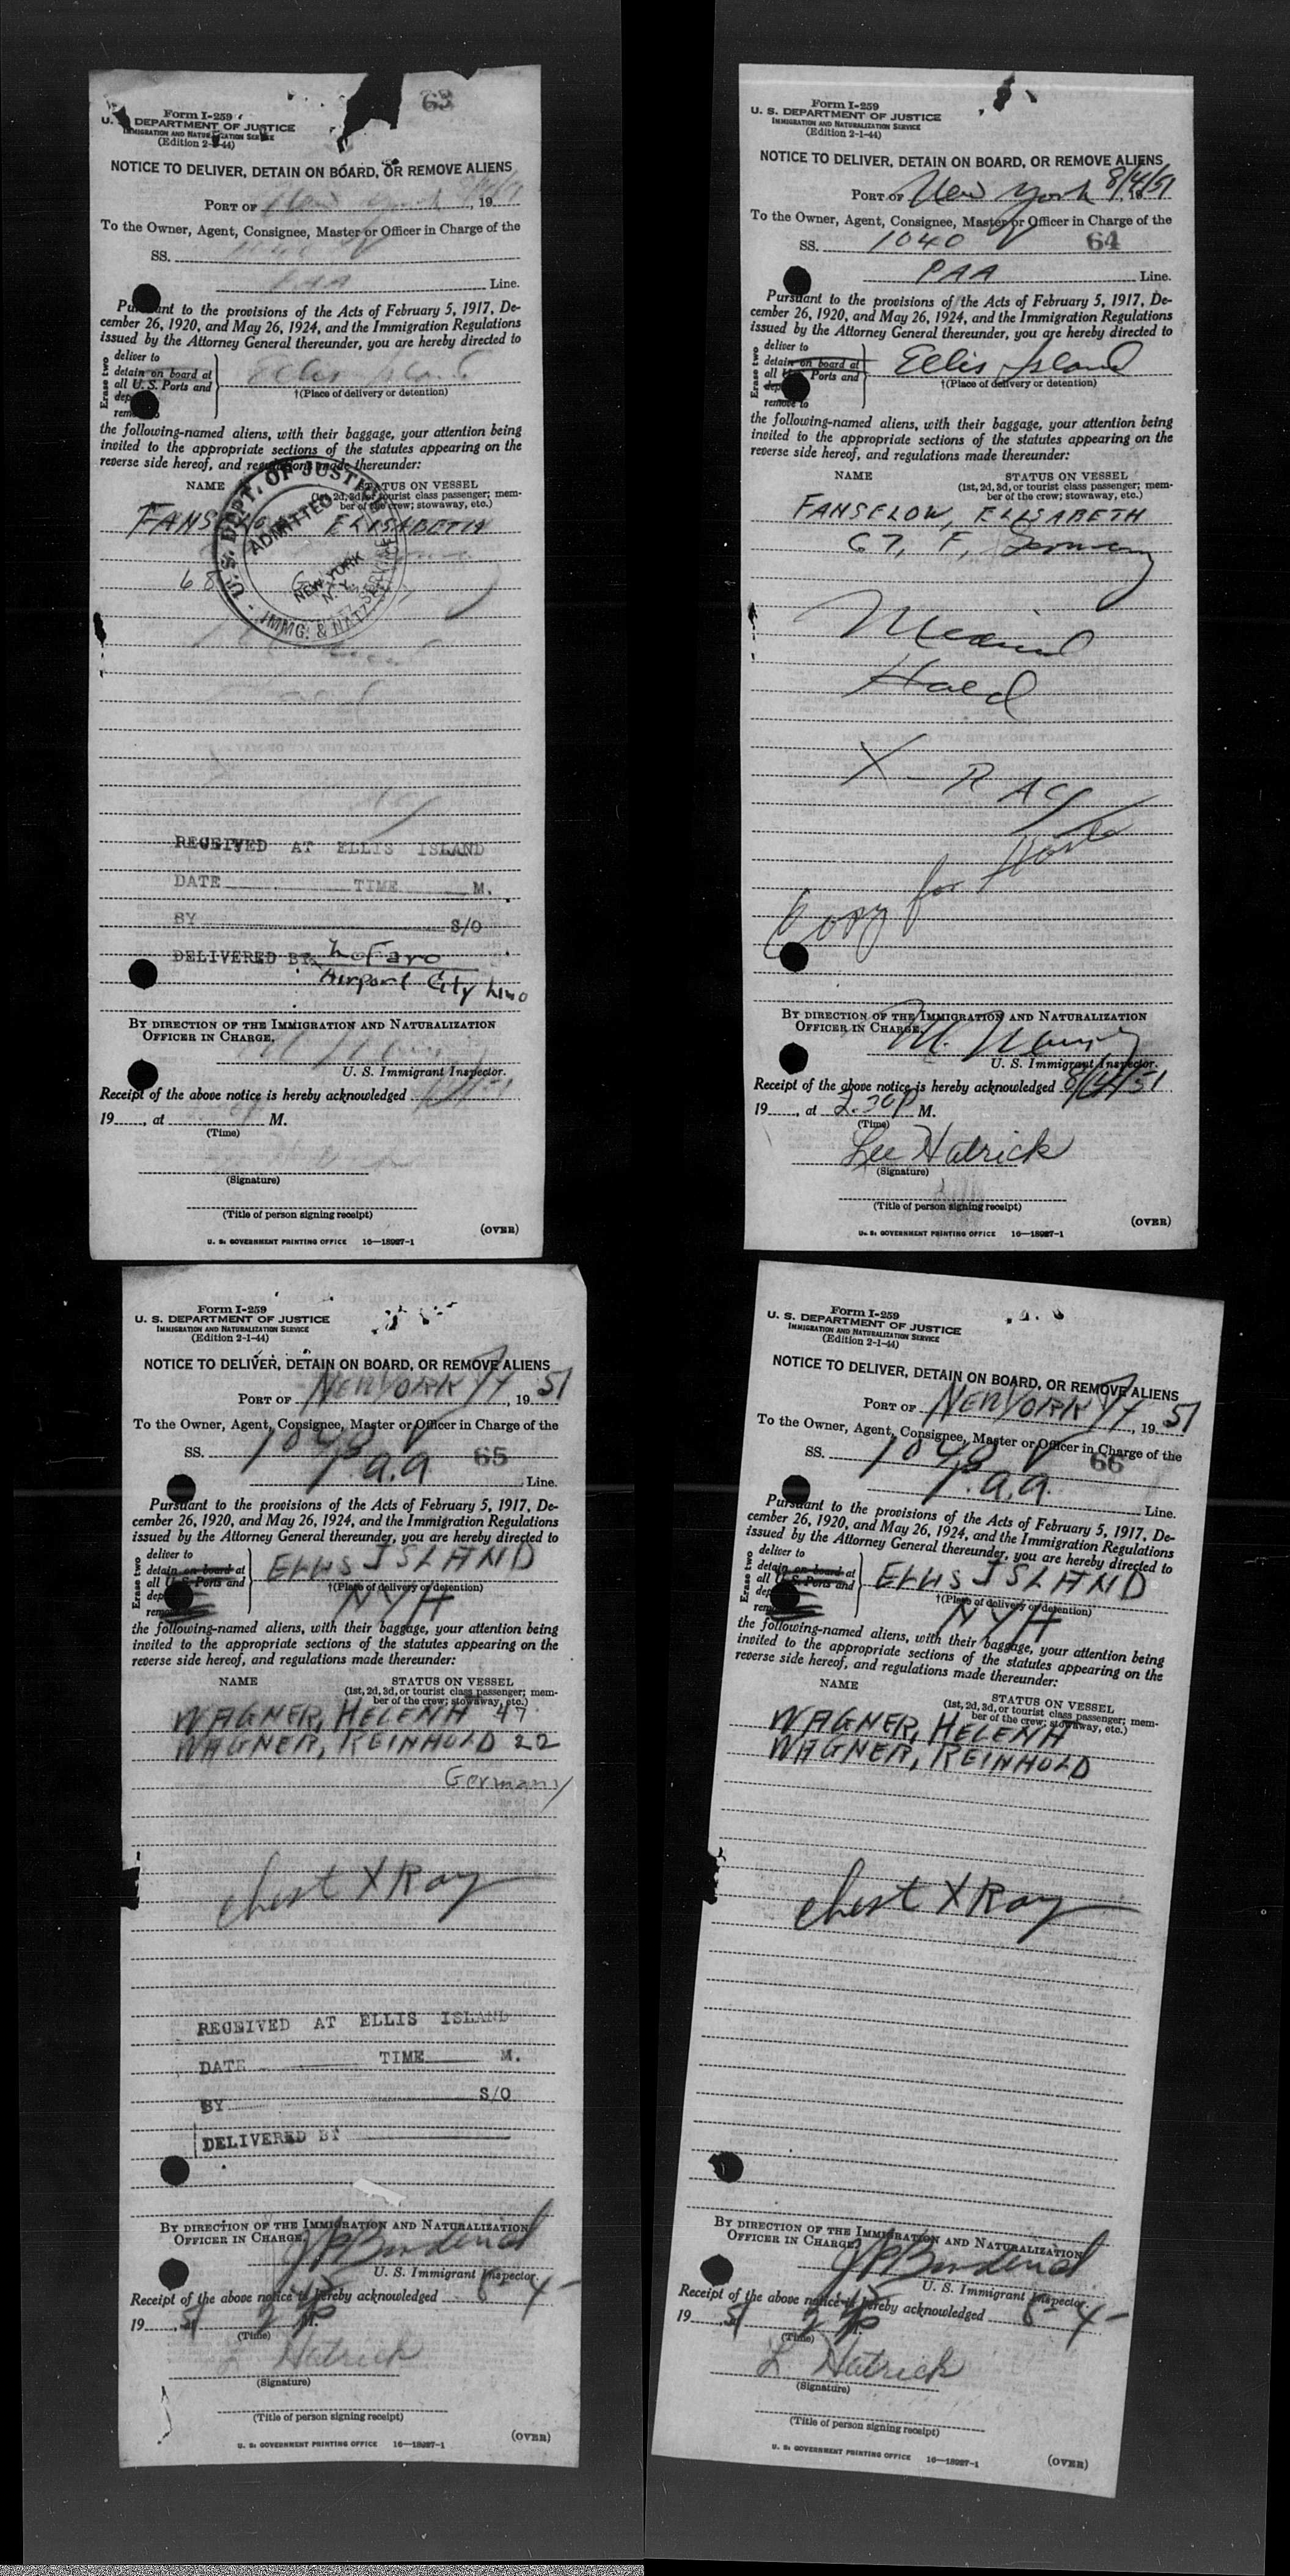 63
Form I-259
U. S. DEPARTMENT OF JUSTICE
IMMIGRATION AND NATURALIZATION SERVICE
(Edition 2-1-44)
NOTICE TO DELIVER, DETAIN ON BOARD, OR REMOVE ALIENS
PORT OF New York, 19
To the Owner, Agent, Consignee, Master or Officer in Charge of the
SS.
PAA Line.
Pursuant to the provisions of the Acts of February 5, 1917, De-
cember 26, 1920, and May 26, 1924, and the Immigration Regulations
issued by the Attorney General thereunder, you are hereby directed to
Erase two
deliver to
detain on board at
all U. S. Ports and
remove to
Ellis Island
†(Place of delivery or detention)
the following-named aliens, with their baggage, your attention being
invited to the appropriate sections of the statutes appearing on the
reverse side hereof, and regulations made thereunder:
NAME STATUS ON VESSEL
(1st, 2d, 3d, or tourist class passenger; mem-
ber of the crew; stowaway, etc.)
FANSELOW, ELISABETH
68
U. S. DEPT. OF JUSTICE
ADMITTED
NEW YORK
N. Y.
IMMG. & NATZ. SERVICE
RECEIVED AT ELLIS ISLAND
DATE TIME M.
BY S/O
DELIVERED BY LoFaro
Airport City Limo
BY DIRECTION OF THE IMMIGRATION AND NATURALIZATION
OFFICER IN CHARGE.
U. S. Immigrant Inspector.
Receipt of the above notice is hereby acknowledged
19, at M.
(Time)
(Signature)
(Title of person signing receipt)
(OVER)
U. S. GOVERNMENT PRINTING OFFICE 16—18927-1
Form I-259
U. S. DEPARTMENT OF JUSTICE
IMMIGRATION AND NATURALIZATION SERVICE
(Edition 2-1-44)
NOTICE TO DELIVER, DETAIN ON BOARD, OR REMOVE ALIENS
PORT OF New York 8/4/51
To the Owner, Agent, Consignee, Master or Officer in Charge of the
SS. 1040 V 64
PAA Line.
Pursuant to the provisions of the Acts of February 5, 1917, De-
cember 26, 1920, and May 26, 1924, and the Immigration Regulations
issued by the Attorney General thereunder, you are hereby directed to
Erase two
deliver to
detain on board at
all U. S. Ports and
remove to
Ellis Island
†(Place of delivery or detention)
the following-named aliens, with their baggage, your attention being
invited to the appropriate sections of the statutes appearing on the
reverse side hereof, and regulations made thereunder:
NAME STATUS ON VESSEL
(1st, 2d, 3d, or tourist class passenger; mem-
ber of the crew; stowaway, etc.)
FANSELOW, ELISABETH
67, F, Germany
Medical
Hold
X-RAY
Copy for
BY DIRECTION OF THE IMMIGRATION AND NATURALIZATION
OFFICER IN CHARGE.
U. S. Immigrant Inspector.
Receipt of the above notice is hereby acknowledged 8/4/51
19, at 2.30p M.
(Time)
Lee Hatrick
(Signature)
(Title of person signing receipt)
(OVER)
U. S. GOVERNMENT PRINTING OFFICE 16—18927-1
Form I-259
U. S. DEPARTMENT OF JUSTICE
IMMIGRATION AND NATURALIZATION SERVICE
(Edition 2-1-44)
NOTICE TO DELIVER, DETAIN ON BOARD, OR REMOVE ALIENS
PORT OF NEW YORK, 19 51
To the Owner, Agent, Consignee, Master or Officer in Charge of the
SS. 1043 V 65
P.a.a. Line.
Pursuant to the provisions of the Acts of February 5, 1917, De-
cember 26, 1920, and May 26, 1924, and the Immigration Regulations
issued by the Attorney General thereunder, you are hereby directed to
Erase two
deliver to
detain on board at
all U. S. Ports and
ELLIS ISLAND
†(Place of delivery or detention)
NYH
the following-named aliens, with their baggage, your attention being
invited to the appropriate sections of the statutes appearing on the
reverse side hereof, and regulations made thereunder:
NAME STATUS ON VESSEL
(1st, 2d, 3d, or tourist class passenger; mem-
ber of the crew; stowaway, etc.)
WAGNER, HELENA 47
WAGNER, REINHOLD 22
Germany
chest X Ray
RECEIVED AT ELLIS ISLAND
DATE TIME M.
BY S/O
DELIVERED BY
BY DIRECTION OF THE IMMIGRATION AND NATURALIZATION
OFFICER IN CHARGE.
U. S. Immigrant Inspector.
Receipt of the above notice is hereby acknowledged 8-4-
19 51
(Time)
L Hatrick
(Signature)
(Title of person signing receipt)
(OVER)
U. S. GOVERNMENT PRINTING OFFICE 16—18927-1
Form I-259
U. S. DEPARTMENT OF JUSTICE
IMMIGRATION AND NATURALIZATION SERVICE
(Edition 2-1-44)
NOTICE TO DELIVER, DETAIN ON BOARD, OR REMOVE ALIENS
PORT OF NEW YORK, 19 51
To the Owner, Agent, Consignee, Master or Officer in Charge of the
SS. 1043 V 66
P.a.a. Line.
Pursuant to the provisions of the Acts of February 5, 1917, De-
cember 26, 1920, and May 26, 1924, and the Immigration Regulations
issued by the Attorney General thereunder, you are hereby directed to
Erase two
deliver to
detain on board at
all U. S. Ports and
ELLIS ISLAND
†(Place of delivery or detention)
NYH
the following-named aliens, with their baggage, your attention being
invited to the appropriate sections of the statutes appearing on the
reverse side hereof, and regulations made thereunder:
NAME STATUS ON VESSEL
(1st, 2d, 3d, or tourist class passenger; mem-
ber of the crew; stowaway, etc.)
WAGNER, HELENA
WAGNER, REINHOLD
chest X Ray
BY DIRECTION OF THE IMMIGRATION AND NATURALIZATION
OFFICER IN CHARGE.
U. S. Immigrant Inspector.
Receipt of the above notice is hereby acknowledged 8-4-
19 51
(Time)
L Hatrick
(Signature)
(Title of person signing receipt)
(OVER)
U. S. GOVERNMENT PRINTING OFFICE 16—18927-1